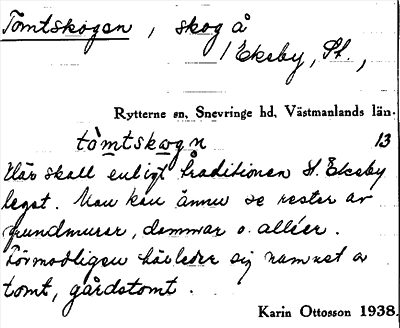 Tomtskogen, skog å
1 Eksby, St.,
Rytterne sn, Snevringe hd, Västmanlands län.
tòmtskogn 13
Här skall enligt traditionen St. Eksby
legat. Man kan ännu se rester av
grundmurar, dammar o. alléer.
Förmodligen härleder sig namnet av
tomt, gårdstomt.
Karin Ottosson 1938.